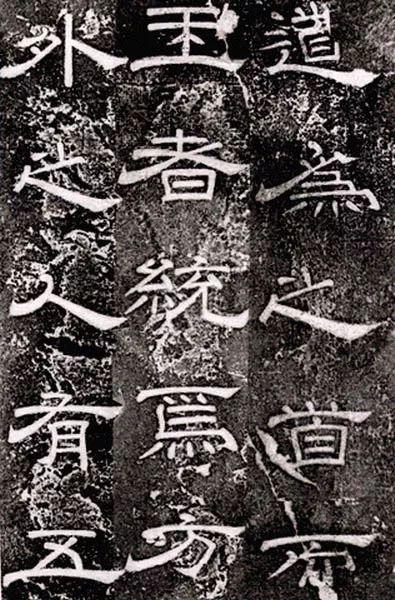 道為之道
王者統爲方
外之人有五